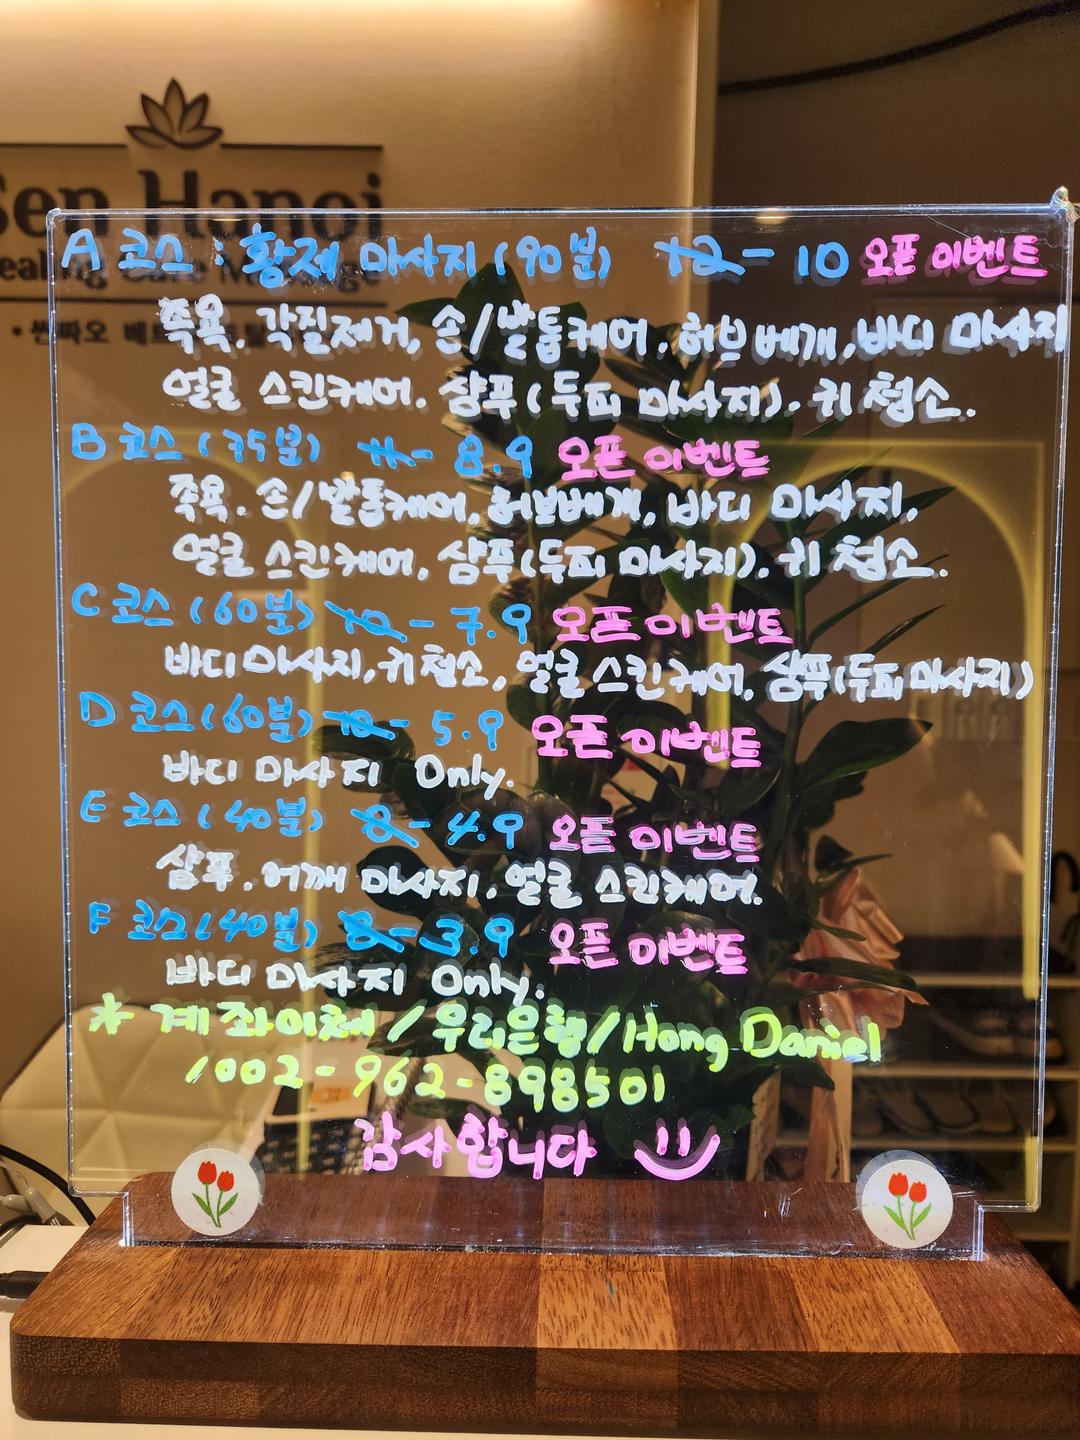 Sen Hanoi
ealing Care Massage
A 코스 : 황제 마사지 (90분) 12 - 10 오픈 이벤트
족욕. 각질제거, 손/발톱케어. 허브베개, 바디 마사지
얼굴 스킨케어. 샴푸(두피 마사지). 귀 청소..
B 코스 (75분) 11 - 8.9 오픈 이벤트
족욕. 손/발톱케어. 허브베개, 바디 마사지,
얼굴 스킨케어, 샴푸(두피 마사지). 귀 청소.
C 코스 (60분) 10 - 7.9 오픈 이벤트
바디 마사지, 귀 청소, 얼굴 스킨케어, 샴푸(두피 마사지)
D 코스 (60분) 10 - 5.9 오픈 이벤트
바디 마사지 Only.
E 코스 (40분) 8 - 4.9 오픈 이벤트
샴푸, 어깨 마사지, 얼굴 스킨케어.
F 코스 (40분) 8 - 3.9 오픈 이벤트
바디 마사지 Only.
* 계좌이체 / 우리은행/Hong Daniel
1002-962-898501
감사합니다